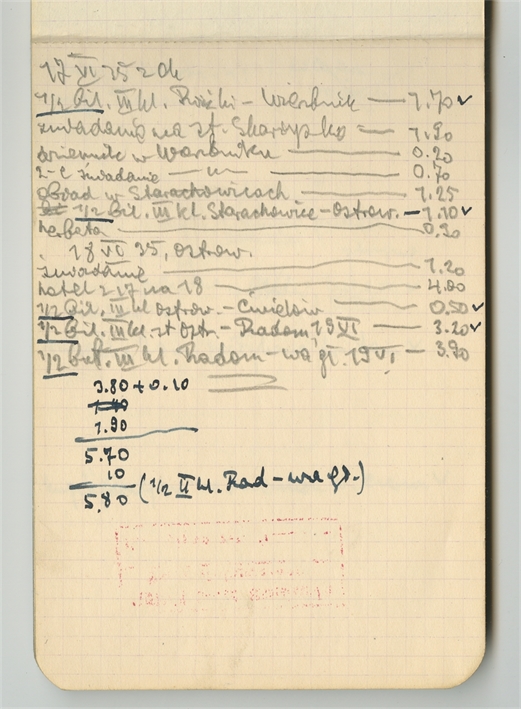 17 VI 35 zdk
1/2 bil. III kl. Rożki – Wierzbnik — 1.70 ✓
śniadanie na st. Skarżysko — 1.90
dziennik w Wierzbniku — 0.20
2-e śniadanie — " — 0.70
obiad w Starachowicach — 1.25
1/2 bil. III kl. Starachowice – Ostrow. — 1.10 ✓
herbata — 0.30
18 VI 35, Ostrow.
śniadanie — 1.20
hotel z 17 na 18 — 4.00
1/2 bil. III kl Ostrow. – Ćmielów — 0.50 ✓
1/2 bil. III kl. st Ostr. – Radom 19 VI — 3.20 ✓
1/2 bil. III kl. Radom – wa gł. 19 VI — 3.90
3.80 + 0.10
1.90
5.70
10
5.80 (1/2 II kl. Rad – wa gł.)